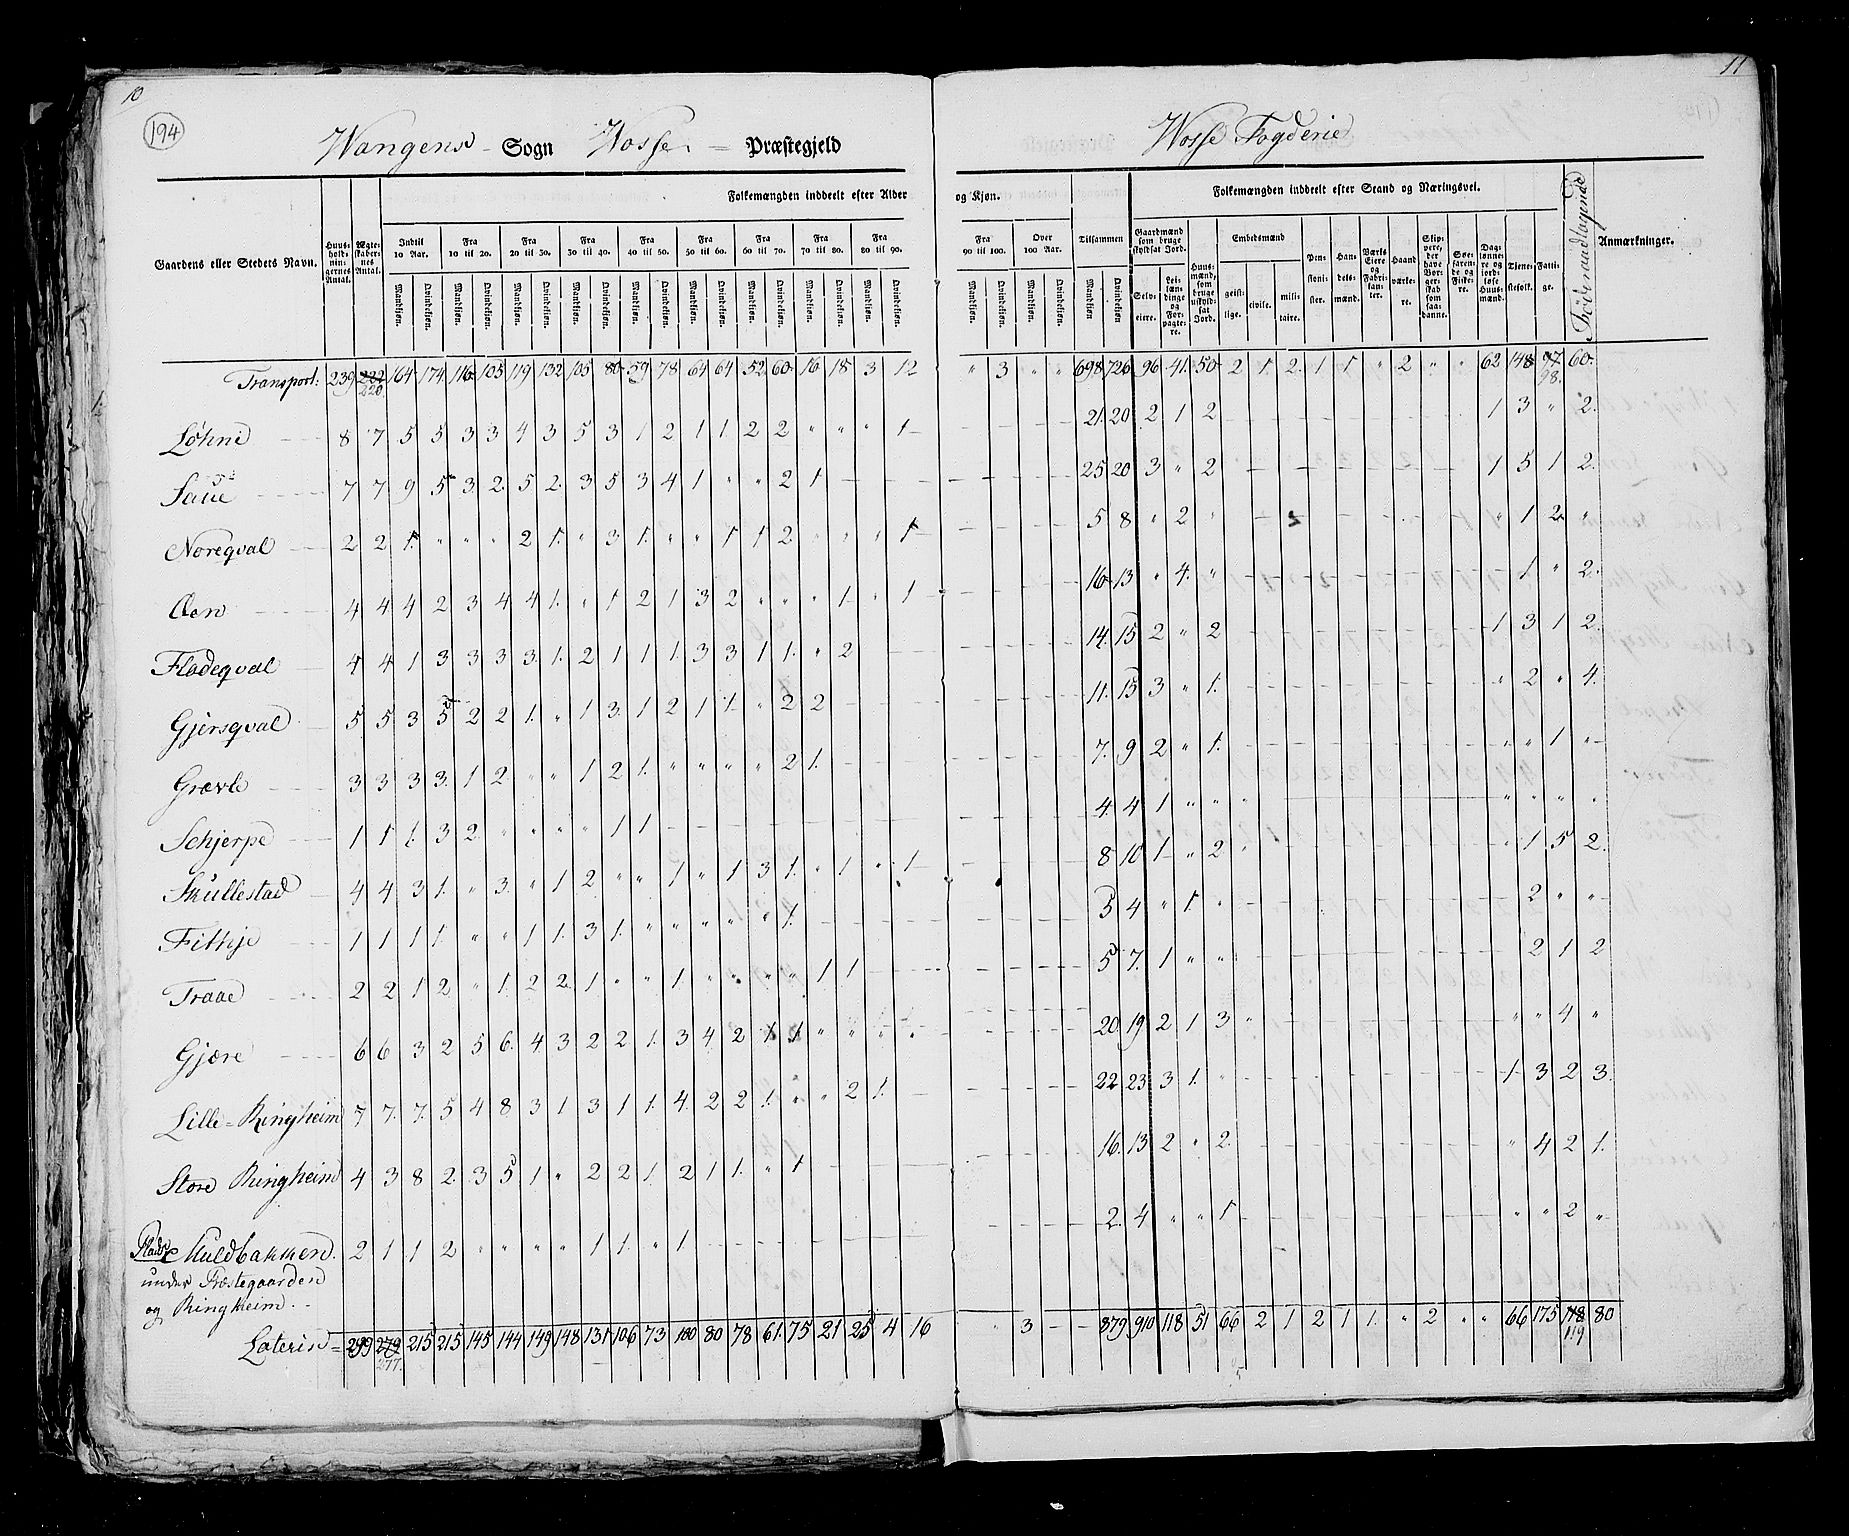 10
11
194
Wangens Sogn Vosse Præstegjeld
Wosse Fogderie
Folkemængden inddeelt efter Alder og Kjøn.
Folkemængden inddeelt efter Stand og Næringsvei.
Gaardens eller Stedets Navn.
Huusholdningernes Antal.
Ægteskabernes Antal.
Indtil 10 Aar.
Fra 10 til 20.
Fra 20 til 30.
Fra 30 til 40.
Fra 40 til 50.
Fra 50 til 60.
Fra 60 til 70.
Fra 70 til 80.
Fra 80 til 90.
Fra 90 til 100.
Over 100 Aar.
Tilsammen
Mandkjøn. Qvindekjøn.
Gaardmænd som bruge skyldsat Jord.
Selveiere.
Leilændinge og Forpagtere.
Huusmænd, som bruge uskyldsat Jord.
Embedsmænd
geistlige.
civile.
militaire.
Pensionister.
Handelsmænd.
Værks Eiere og Fabrikanter.
Haandværkere.
Skippere, der have Borgerskab som saadanne.
Søefarende og Fiskere.
Daglønnere og jordløse Huusmænd.
Tjenestefolk.
Fattige.
Föderaadtagende
Anmærkninger.
Transport: 239 222 220 164 174 116 105 119 132 105 80 59 78 64 64 52 60 16 18 3 12 " 3 " " 698 726 96 41 50 2 1 2 1 1 " 2 " " 62 148 97 98. 60
Løhne 8 7 5 5 3 3 4 3 5 3 1 2 1 1 2 2 " " " 1 21 20 2 1 2 1 3 " 2
Saue 7 7 9 5 3 2 5 2 3 5 3 4 1 " " 2 1 25 20 3 " 2 1 5 1 2
Noreqval 2 2 1 " " " 2 1 " 3 1 " " 1 1 2 " " " 1 5 8 " 2 " " 1 2 "
Aen 4 4 4 2 3 4 4 1 " 1 2 1 3 2 " " " 1 " 1 16 13 " 4 " 1 " 2
Fladeqval 4 4 1 3 3 3 3 1 2 1 1 1 3 3 1 1 " 2 14 15 2 " 2 1 3 1 2
Gjersqval 5 5 3 5 2 2 1 " 1 3 1 2 1 1 " 2 2 11 15 3 " 1 " 2 " 4
Grævle 3 3 3 3 1 2 " " 1 2 1 " " " " 2 1 7 9 2 " 1 " " 1 "
Schjerpe 1 1 1 3 2 " " " " 1 1 4 4 1 " " " " " " "
Skullestad 4 4 3 1 " 3 " 1 2 " " 1 " 1 3 1 " 1 " 1 8 10 1 " 2 " 1 5 2
Fithje 1 1 1 1 " " 1 1 3 1 " " " " " 1 5 4 " 1 " 2 " "
Traae 2 2 1 2 " 1 2 2 1 " " 1 " " " " 1 1 5 7 1 " " 2 1 2
Gjære 6 6 3 2 5 6 4 3 2 2 1 3 4 2 1 1 " " " " 20 19 2 1 3 " " 4 "
Lille-Ringheim 7 7 7 5 4 8 3 1 3 1 1 4 2 2 1 " " 2 1 22 23 3 1 " 1 3 2 3
Store Ringheim 4 3 8 2 3 5 1 " 2 2 1 2 1 1 " 1 16 13 2 " 2 " 4 2 1
Pladse Kuldbakken 2 1 1 2 " " " " 1 1 " 1 2 4 " " 1 " " 2 "
under Præstegaarden
og Ringheim
Lateris = 299 279 277. 215 215 145 144 149 148 131 106 73 100 80 78 61 75 21 25 4 16 " 3 879 910 118 51 66 2 1 2 1 1 " 2 " " 66 175 118 119 80